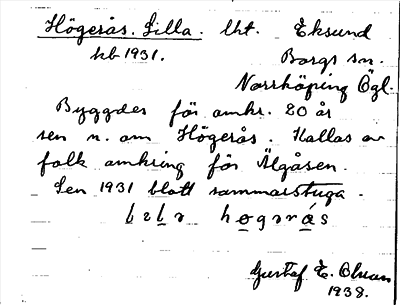 Högerås. Lilla. lht. Eksund
kb 1931. Borgs sn.
Norrköping Ögl.
Byggdes för omkr. 20 år
sen n. om Högerås. Kallas av
folk omkring för Älgåsen.
Sen 1931 blott sommarstuga.
högərås
Gustaf E. Olsson
1938.